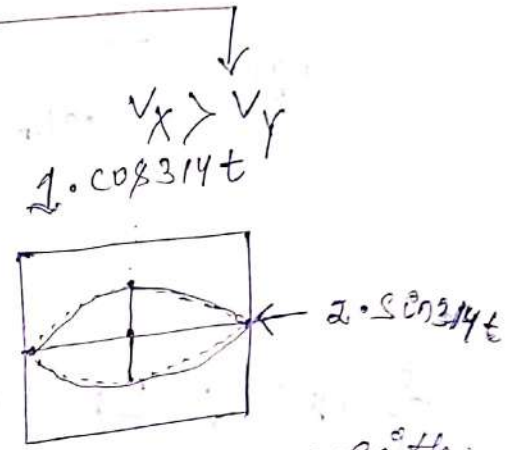 Vx > Vy
1. cos314t
2. sin314t